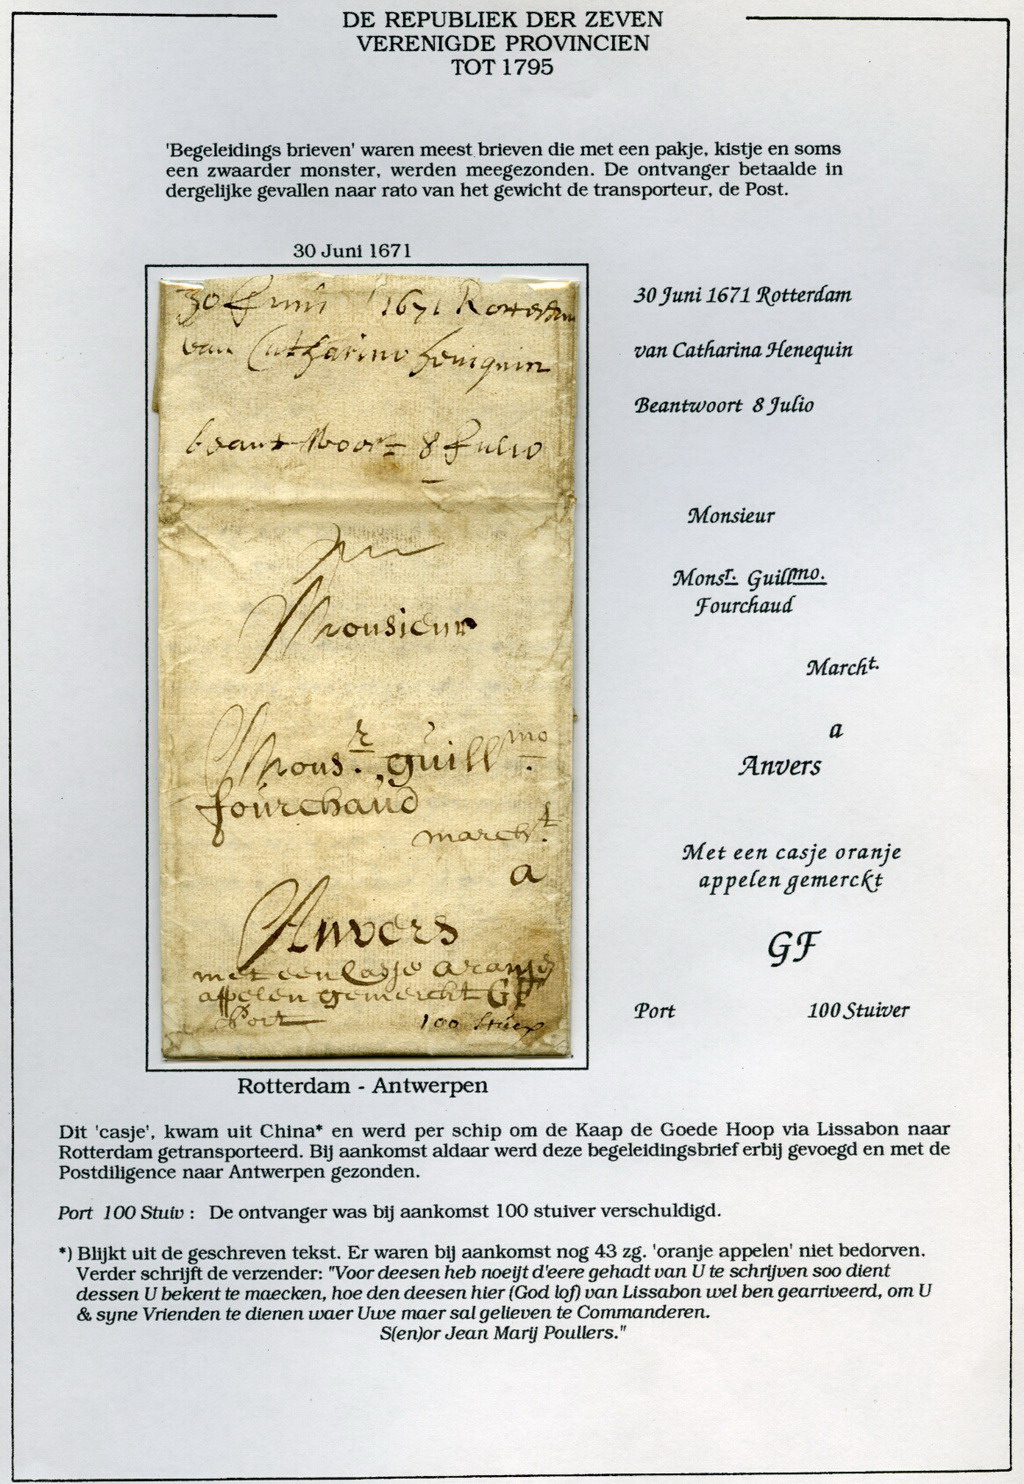 DE REPUBLIEK DER ZEVEN
VERENIGDE PROVINCIEN
TOT 1795
'Begeleidings brieven' waren meest brieven die met een pakje, kistje en soms
een zwaarder monster, werden meegezonden. De ontvanger betaalde in
dergelijke gevallen naar rato van het gewicht de transporteur, de Post.
30 Juni 1671
30 Juni 1671 Rotterdam
van Catharina Heniquin
beantwoort 8 Julio
Monsieur
Monsr. guillmo.
fourchaud
marcht.
a
Anvers
met een Casje oranje
appelen gemerckt GF
Port 100 stuy
30 Juni 1671 Rotterdam
van Catharina Henequin
Beantwoort 8 Julio
Monsieur
Monsr. Guillmo.
Fourchaud
Marcht.
a
Anvers
Met een casje oranje
appelen gemerckt
GF
Port 100 Stuiver
Rotterdam - Antwerpen
Dit 'casje', kwam uit China* en werd per schip om de Kaap de Goede Hoop via Lissabon naar
Rotterdam getransporteerd. Bij aankomst aldaar werd deze begeleidingsbrief erbij gevoegd en met de
Postdiligence naar Antwerpen gezonden.
Port 100 Stuiv : De ontvanger was bij aankomst 100 stuiver verschuldigd.
*) Blijkt uit de geschreven tekst. Er waren bij aankomst nog 43 zg. 'oranje appelen' niet bedorven.
Verder schrijft de verzender: "Voor deesen heb noeijt d'eere gehadt van U te schrijven soo dient
dessen U bekent te maecken, hoe den deesen hier (God lof) van Lissabon wel ben gearriveerd, om U
& syne Vrienden te dienen waer Uwe maer sal gelieven te Commanderen.
S(en)or Jean Marij Poullers."